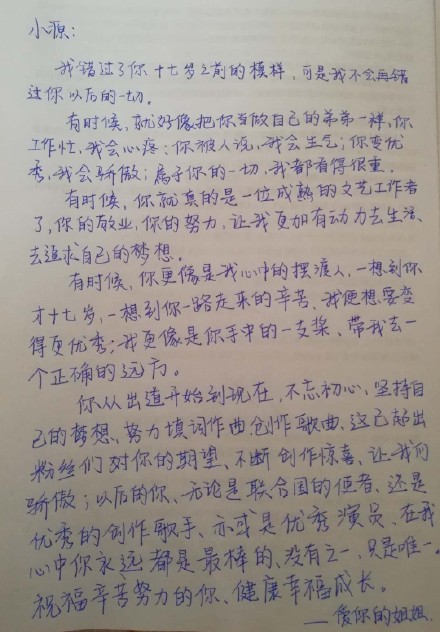 小源：
我错过了你十七岁之前的模样，可是我不会再错
过你以后的一切。
有时候，就好像把你当做自己的弟弟一样，你
工作忙，我会心疼；你被人说，我会生气；你变优
秀，我会骄傲；属于你的一切，我都看得很重。
有时候，你就真的是一位成熟的文艺工作者
了，你的敬业，你的努力，让我更加有动力去生活、
去追求自己的梦想。
有时候，你更像是我心中的摆渡人，一想到你
才十七岁，一想到你一路走来的辛苦、我便想要变
得更优秀；我更像是你手中的一支桨、带我去一
个正确的远方。
你从出道开始到现在，不忘初心，坚持自
己的梦想、努力填词作曲创作歌曲、这已超出
粉丝们对你的期望、不断创作惊喜、让我们
骄傲；以后的你、无论是联合国的使者、还是
优秀的创作歌手、亦或是优秀演员、在我
心中你永远都是最棒的、没有之一、只是唯一。
祝福辛苦努力的你、健康幸福成长。
——爱你的姐姐.